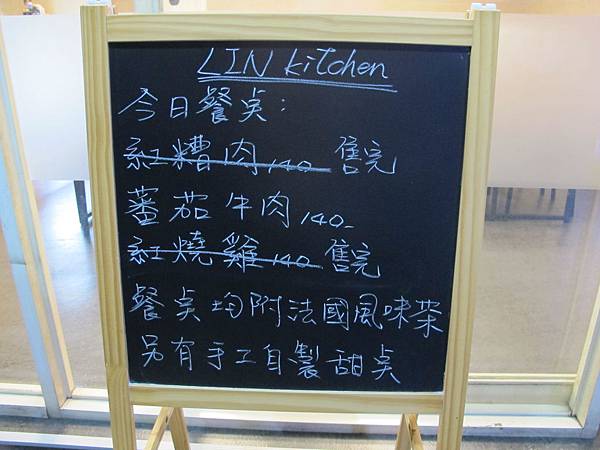 LIN kitchen
今日餐点:
紅糟肉140 售完
蕃茄牛肉140
紅燒雞140 售完
餐点均附法國風味菜
另有手工自製甜点